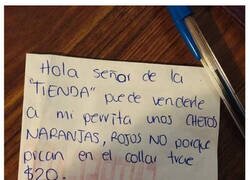 Hola señor de la
"TIENDA" puede venderle
a mi perrita unos CHETOS
NARANJAS, ROJOS NO porque
pican en el collar trae
$20.